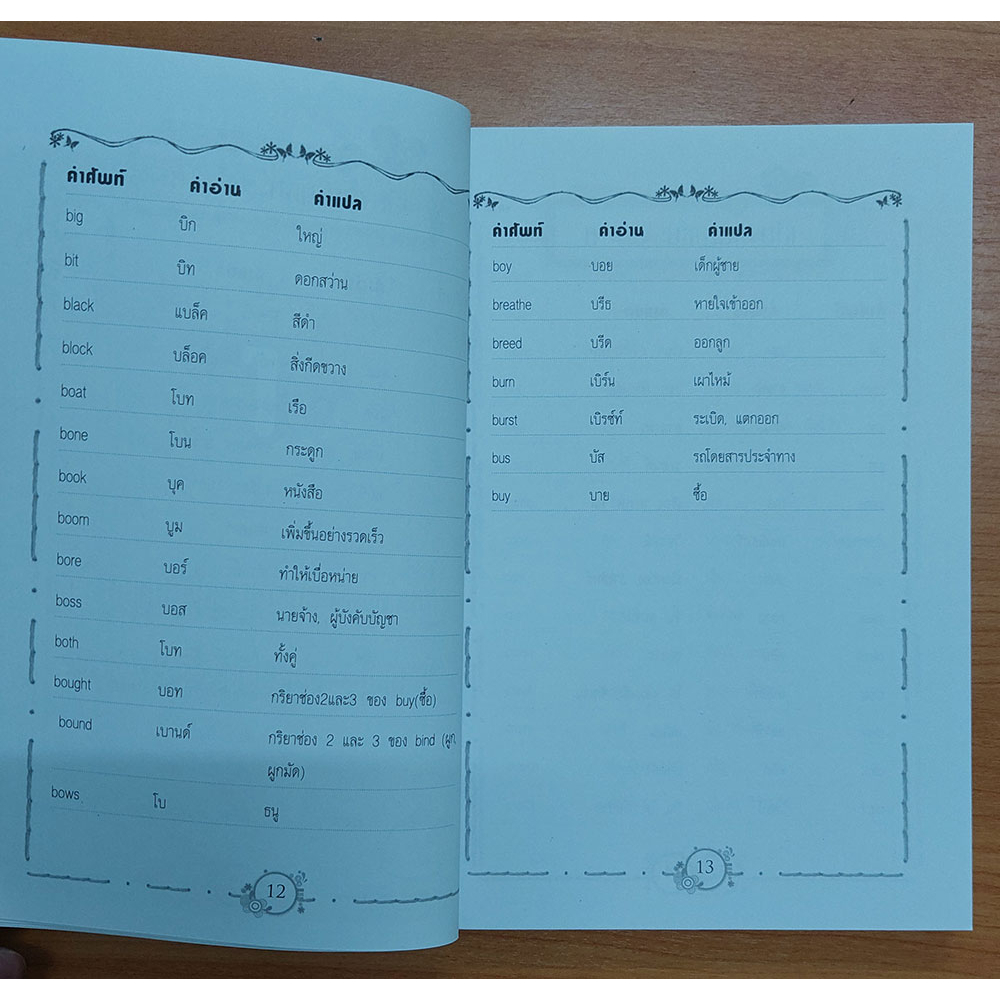 คำศัพท์ คำอ่าน คำแปล
big บิก ใหญ่
bit บิท ดอกสว่าน
black แบล็ค สีดำ
block บล็อค สิ่งกีดขวาง
boat โบท เรือ
bone โบน กระดูก
book บุค หนังสือ
boom บูม เพิ่มขึ้นอย่างรวดเร็ว
bore บอร์ ทำให้เบื่อหน่าย
boss บอส นายจ้าง, ผู้บังคับบัญชา
both โบท ทั้งคู่
bought บอท กริยาช่อง2และ3 ของ buy(ซื้อ)
bound เบานด์ กริยาช่อง 2 และ 3 ของ bind (ผูก,
ผูกมัด)
bows โบ ธนู
12
คำศัพท์ คำอ่าน คำแปล
boy บอย เด็กผู้ชาย
breathe บรีธ หายใจเข้าออก
breed บรีด ออกลูก
burn เบิร์น เผาไหม้
burst เบิรซ์ท์ ระเบิด, แตกออก
bus บัส รถโดยสารประจำทาง
buy บาย ซื้อ
13